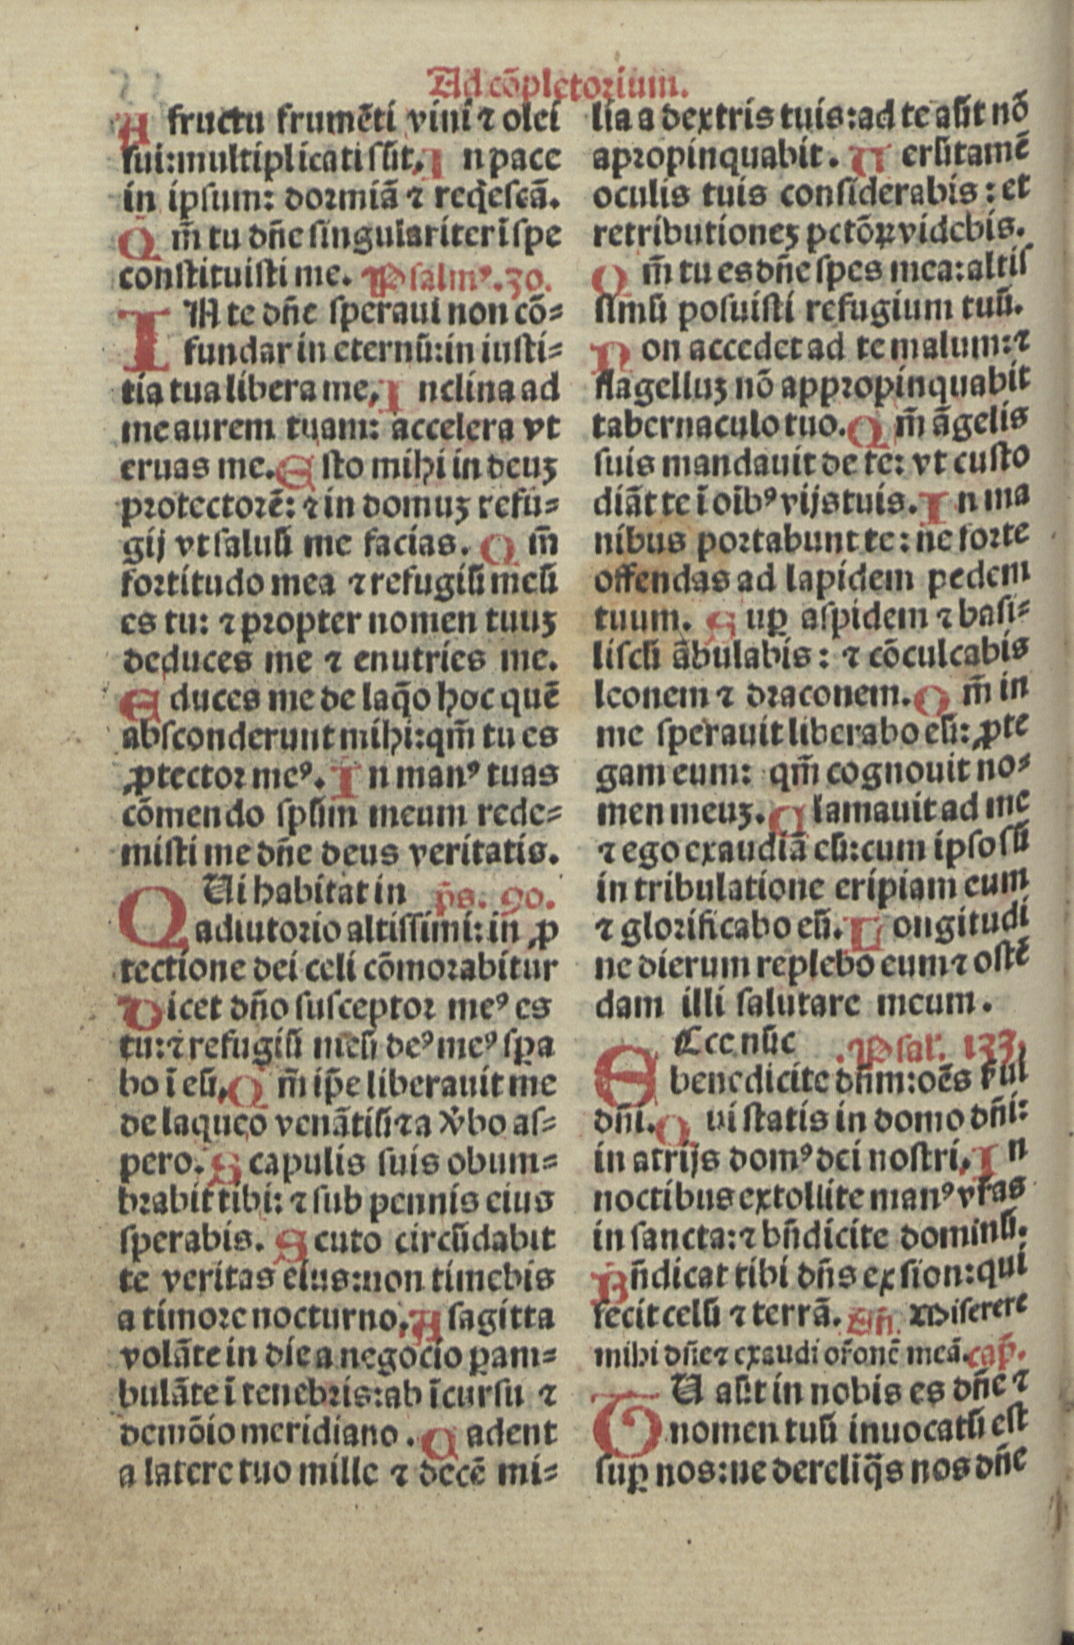 Ad cõpletorium.
A fructu frumẽti vini ⁊ olei
sui: multiplicati sũt. In pace
in ipsum: dormiã ⁊ reqͥescã.
Qm̃ tu dñe singulariter ĩ spe
constituisti me. Psalmꝰ. 30.
IN te dñe speraui non cõ-
fundar in eternũ: in iusti-
tia tua libera me. Inclina ad
me aurem tuam: accelera vt
eruas me. Esto mihi in deuʒ
protectorẽ: ⁊ in domuʒ refu-
gij vt saluũ me facias. Qm̃
fortitudo mea ⁊ refugiũ meũ
es tu: ⁊ propter nomen tuuʒ
deduces me ⁊ enutries me.
Educes me de laq̃o hoc quẽ
absconderunt mihi: qm̃ tu es
ꝓtector meꝰ. In manꝰ tuas
cõmendo spũm meum rede-
misti me dñe deus veritatis.
QUi habitat in ps̃. 90.
adiutorio altissimi: in ꝓ
tectione dei celi cõmorabitur
Dicet dño susceptor meꝰ es
tu: ⁊ refugiũ meũ deꝰ meꝰ sꝑa
bo ĩ eũ. Qm̃ ip̃e liberauit me
de laqueo venãtiũ ⁊ a v̾bo as-
pero. Scapulis suis obum-
brabit tibi: ⁊ sub pennis eius
sperabis. Scuto circũdabit
te veritas eius: non timebis
a timore nocturno. A sagitta
volãte in die a negocio ꝑam-
bulãte ĩ tenebris: ab ĩcursu ⁊
demõio meridiano. Cadent
a latere tuo mille ⁊ decẽ mi-
lia a dextris tuis: ad te aũt nõ
apropinquabit. Uerũtamẽ
oculis tuis considerabis: et
retributioneʒ pctõꝝ videbis.
Qm̃ tu es dñe spes mea: altis
simũ posuisti refugium tuũ.
Non accedet ad te malum: ⁊
flagelluʒ nõ appropinquabit
tabernaculo tuo. Qm̃ ãgelis
suis mandauit de te: vt custo
diãt te ĩ oĩbꝰ vijs tuis. In ma
nibus portabunt te: ne forte
offendas ad lapidem pedem
tuum. Suꝑ aspidem ⁊ basi-
liscũ ãbulabis: ⁊ cõculcabis
leonem ⁊ draconem. Qm̃ in
me sperauit liberabo eũ: ꝓte
gam eum: qm̃ cognouit no-
men meuʒ. Clamauit ad me
⁊ ego exaudiã eũ: cum ipso sũ
in tribulatione eripiam eum
⁊ glorificabo eũ. Longitudi
ne dierum replebo eum ⁊ ostẽ
dam illi salutare meum.
ECce nũc Psal'. 133.
benedicite dñm: oẽs s̾ui
dñi. Qui statis in domo dñi:
in atrijs domꝰ dei nostri. In
noctibus extollite manꝰ vr̃as
in sancta: ⁊ bñdicite dominũ.
Bñdicat tibi dñs ex sion: qui
fecit celũ ⁊ terrã. Añ. Miserere
mihi dñe ⁊ exaudi or̃onẽ meã. cap̃.
TU aũt in nobis es dñe ⁊
nomen tuũ inuocatũ est
suꝑ nos: ne derelĩqͣs nos dñe